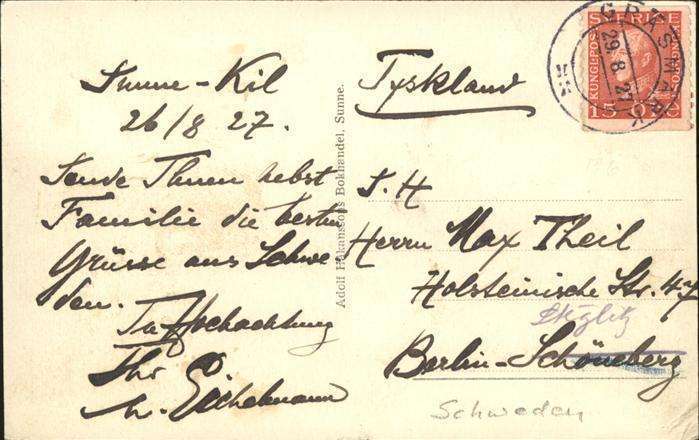 Sunne-Kil
26/8 27.
Sende Ihnen nebst
Familie die besten
Grüsse aus Schwe
den.
In Hochachtung
Ihr
Adolf Håkanssons Bokhandel, Sunne.
Tyskland
GRÄSMARK
29 8 27
SVERIGE
15 ÖRE
S. H
Herrn Max Theil
Holsteinische Str. 47
Steglitz
Berlin-Schöneberg
Schweden